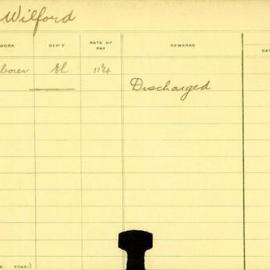 Wilford
WORK DEP'T RATE OF PAY REMARKS DAT
borer El 11¼
Discharged